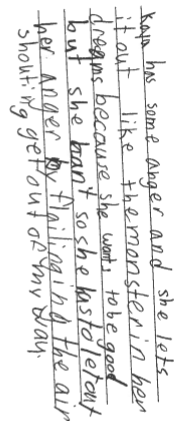 has some anger and she lets
it out like the monster in her
dreams because she wants to be good
but she can't so she has to let out
her anger by flailing in the air
shouting get out of my way.